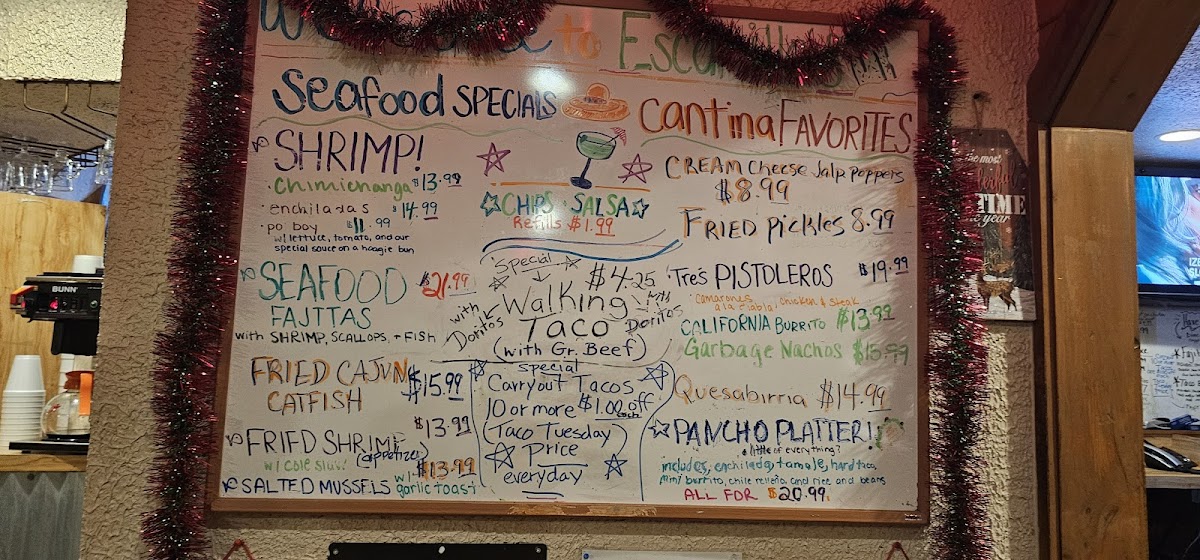 to
Seafood SPECIALS
SHRIMP!
• Chimichanga $13.99
• enchiladas $14.99
• po boy $11.99
w/ lettuce, tomato, and our
special sauce on a hoagie bun
SEAFOOD $21.99
FAJITAS
with SHRIMP, SCALLOPS, + FISH
FRIED CAJUN $15.99
CATFISH
FRIED SHRIMP $13.99
(appetizer)
w/ cole slaw!
$13.99
SALTED MUSSELS w/ garlic toast
CHIPS & SALSA
Refills $1.99
Special
$4.25
Walking
Taco
with Doritos
with Doritos
(with Gr. Beef)
special
Carryout Tacos
10 or more $1.00 off
each
(Taco Tuesday)
Price
everyday
Cantina FAVORITES
CREAM Cheese Jalp Poppers
$8.99
FRIED Pickles 8.99
Tre's PISTOLEROS $19.99
Camarones a la diabla, chicken & steak
CALIFORNIA BURRITO $13.99
Garbage Nachos $15.99
Quesabirria $14.99
PANCHO PLATTER!
a little of everything?
includes, enchilada, tamale, hard taco,
mini burrito, chile relleno, and rice and beans
ALL FOR $20.99
BUNN
the most
TIME